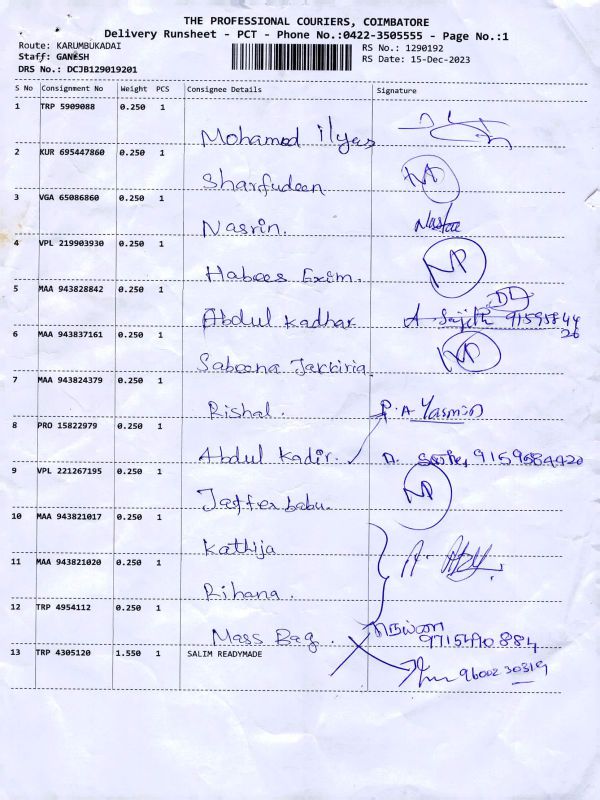 THE PROFESSIONAL COURIERS, COIMBATORE
Delivery Runsheet - PCT - Phone No.:0422-3505555 - Page No.:1
Route: KARUMBUKADAI RS No.: 1290192
Staff: GANESH RS Date: 15-Dec-2023
DRS No.: DCJB129019201
S No Consignment No Weight PCS Consignee Details Signature
1 TRP 5909088 0.250 1
Mohamed ilyas
2 KUR 695447860 0.250 1
Sharfudeen
3 VGA 65086860 0.250 1
Nasrin.
4 VPL 219903930 0.250 1
Habees Exim. NP
5 MAA 943828842 0.250 1 DL
Abdul Kadhar A 9159584420
6 MAA 943837161 0.250 1
Sabeena Jakkiria
7 MAA 943824379 0.250 1
Rishal. P.A Yasmin
8 PRO 15822979 0.250 1
Abdul Kadir.
9 VPL 221267195 0.250 1
Jaffer babu. NP
10 MAA 943821017 0.250 1
Kathija
11 MAA 943821020 0.250 1
Rihana.
12 TRP 4954112 0.250 1
Mass Bag. 9715490884
13 TRP 4305120 1.550 1 SALIM READYMADE
9600230319